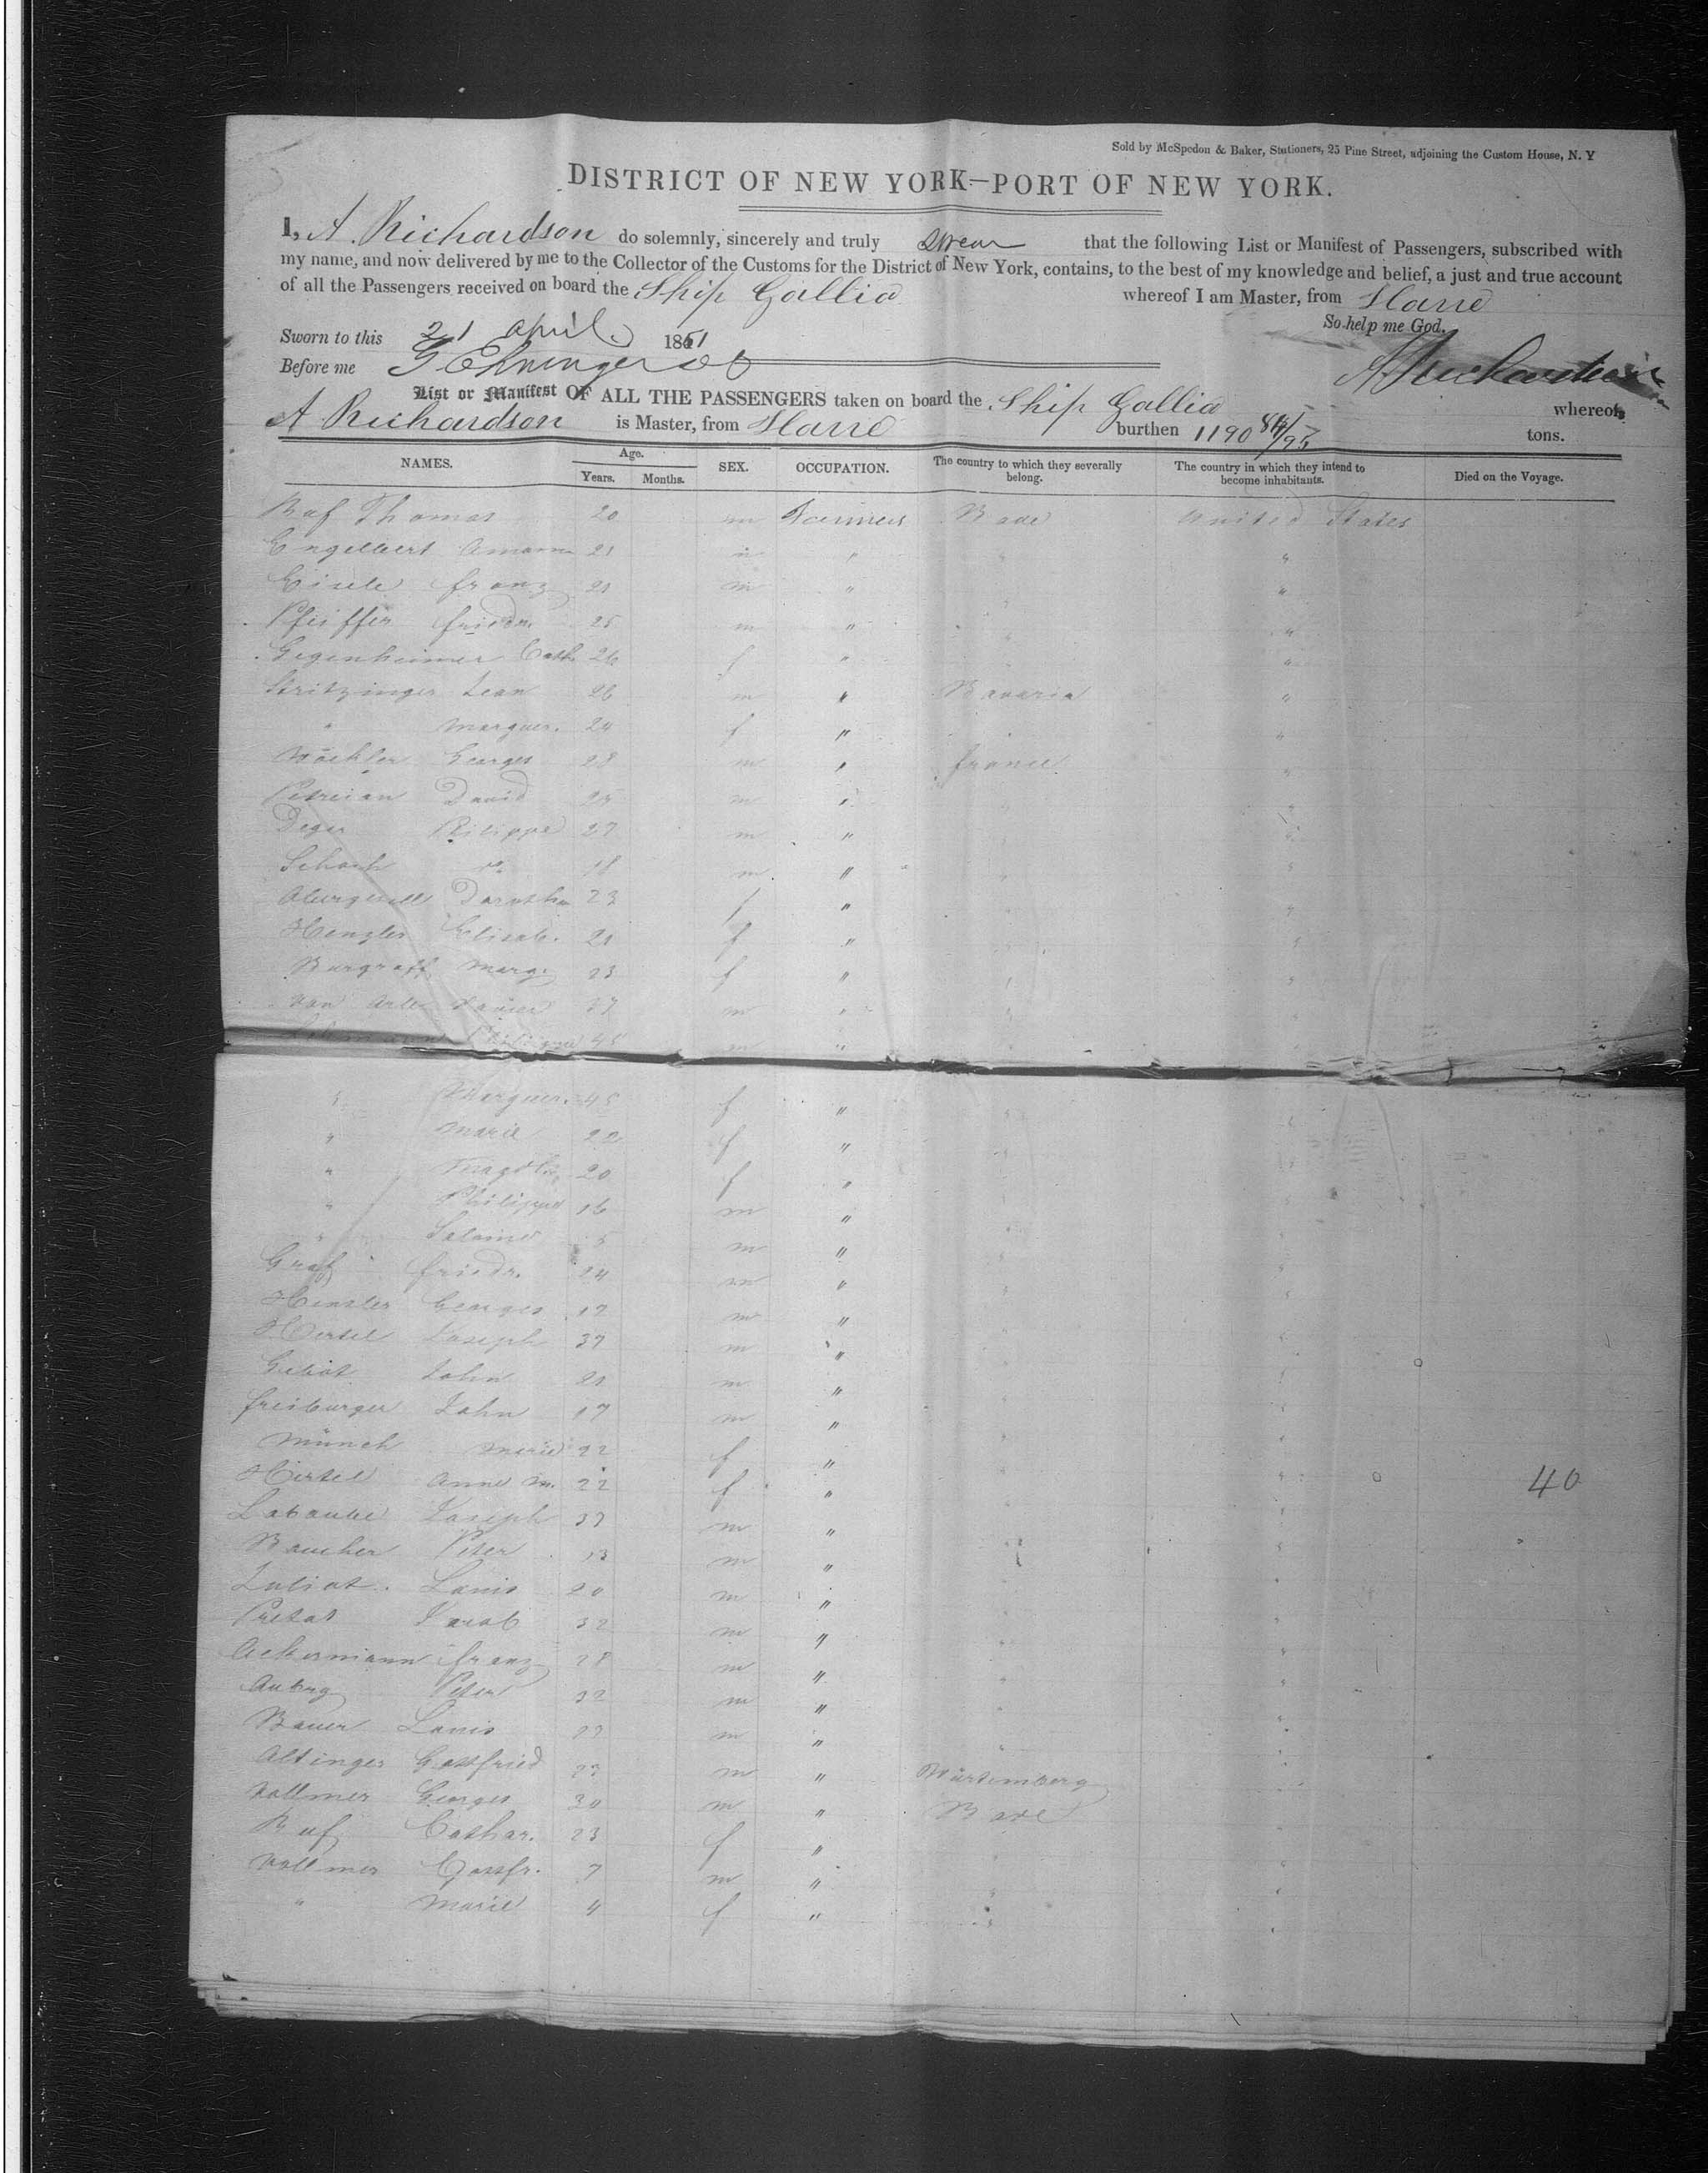 Sold by McSpedon & Baker, Stationers, 25 Pine Street, adjoining the Custom House, N. Y
DISTRICT OF NEW YORK—PORT OF NEW YORK.
I, A. Richardson do solemnly, sincerely and truly swear that the following List or Manifest of Passengers, subscribed with
my name, and now delivered by me to the Collector of the Customs for the District of New York, contains, to the best of my knowledge and belief, a just and true account
of all the Passengers received on board the Ship Gallia whereof I am Master, from Havre
So help me God.
Sworn to this 21 April 1851
Before me
A Richardson
List or Manifest OF ALL THE PASSENGERS taken on board the Ship Gallia whereof
A Richardson is Master, from Havre burthen 1190 tons.
NAMES. Age. Years. Months. SEX. OCCUPATION. The country to which they severally belong. The country in which they intend to become inhabitants. Died on the Voyage.
Ruf Thomas 20 m Farmers Bade United States
Engelbert Amann 21 m " " "
Eisele franz 21 m " " "
Pfeiffer friedr. 25 m " " "
Gegenheimer Cath 26 f " " "
Stritzinger Jean 26 m " Bavaria "
" Marguer. 24 f " " "
Georges 28 m " france "
David 25 m " " "
Philippe 27 m " " "
18 m " " "
Dorothea 23 f " " "
Henzler Elisab. 21 f " " "
Burgraff Marg. 23 f " " "
Xavier 37 m " " "
45 m "
" Marguer. 45 f " " "
" Marie 22 f " " "
" Magdl 20 f " " "
" Philippe 16 m " " "
" m " " "
Graf friedr. 24 m " " "
Henzler Georges 17 m " " "
Hertel Joseph 37 m " " "
John 21 m " " "
freiburger John 17 m " " "
Münch Marie 22 f " " "
Hertel Anne M. 22 f " " " 40
Labaube Joseph 37 m " " "
Baucher Peter 13 m " " "
Juliat Louis 20 m " " "
Pretat Jacob 32 m " " "
Ackermann franz 28 m " " "
Aubry Peter 32 m " " "
Bauer Louis 22 m " " "
Altinger Gottfried 23 m " Würtemberg "
Vollmer Georges 30 m " Bade "
Ruf Cathar. 23 f " " "
Vollmer Gottfr. 7 m " " "
" Marie 4 f " " "